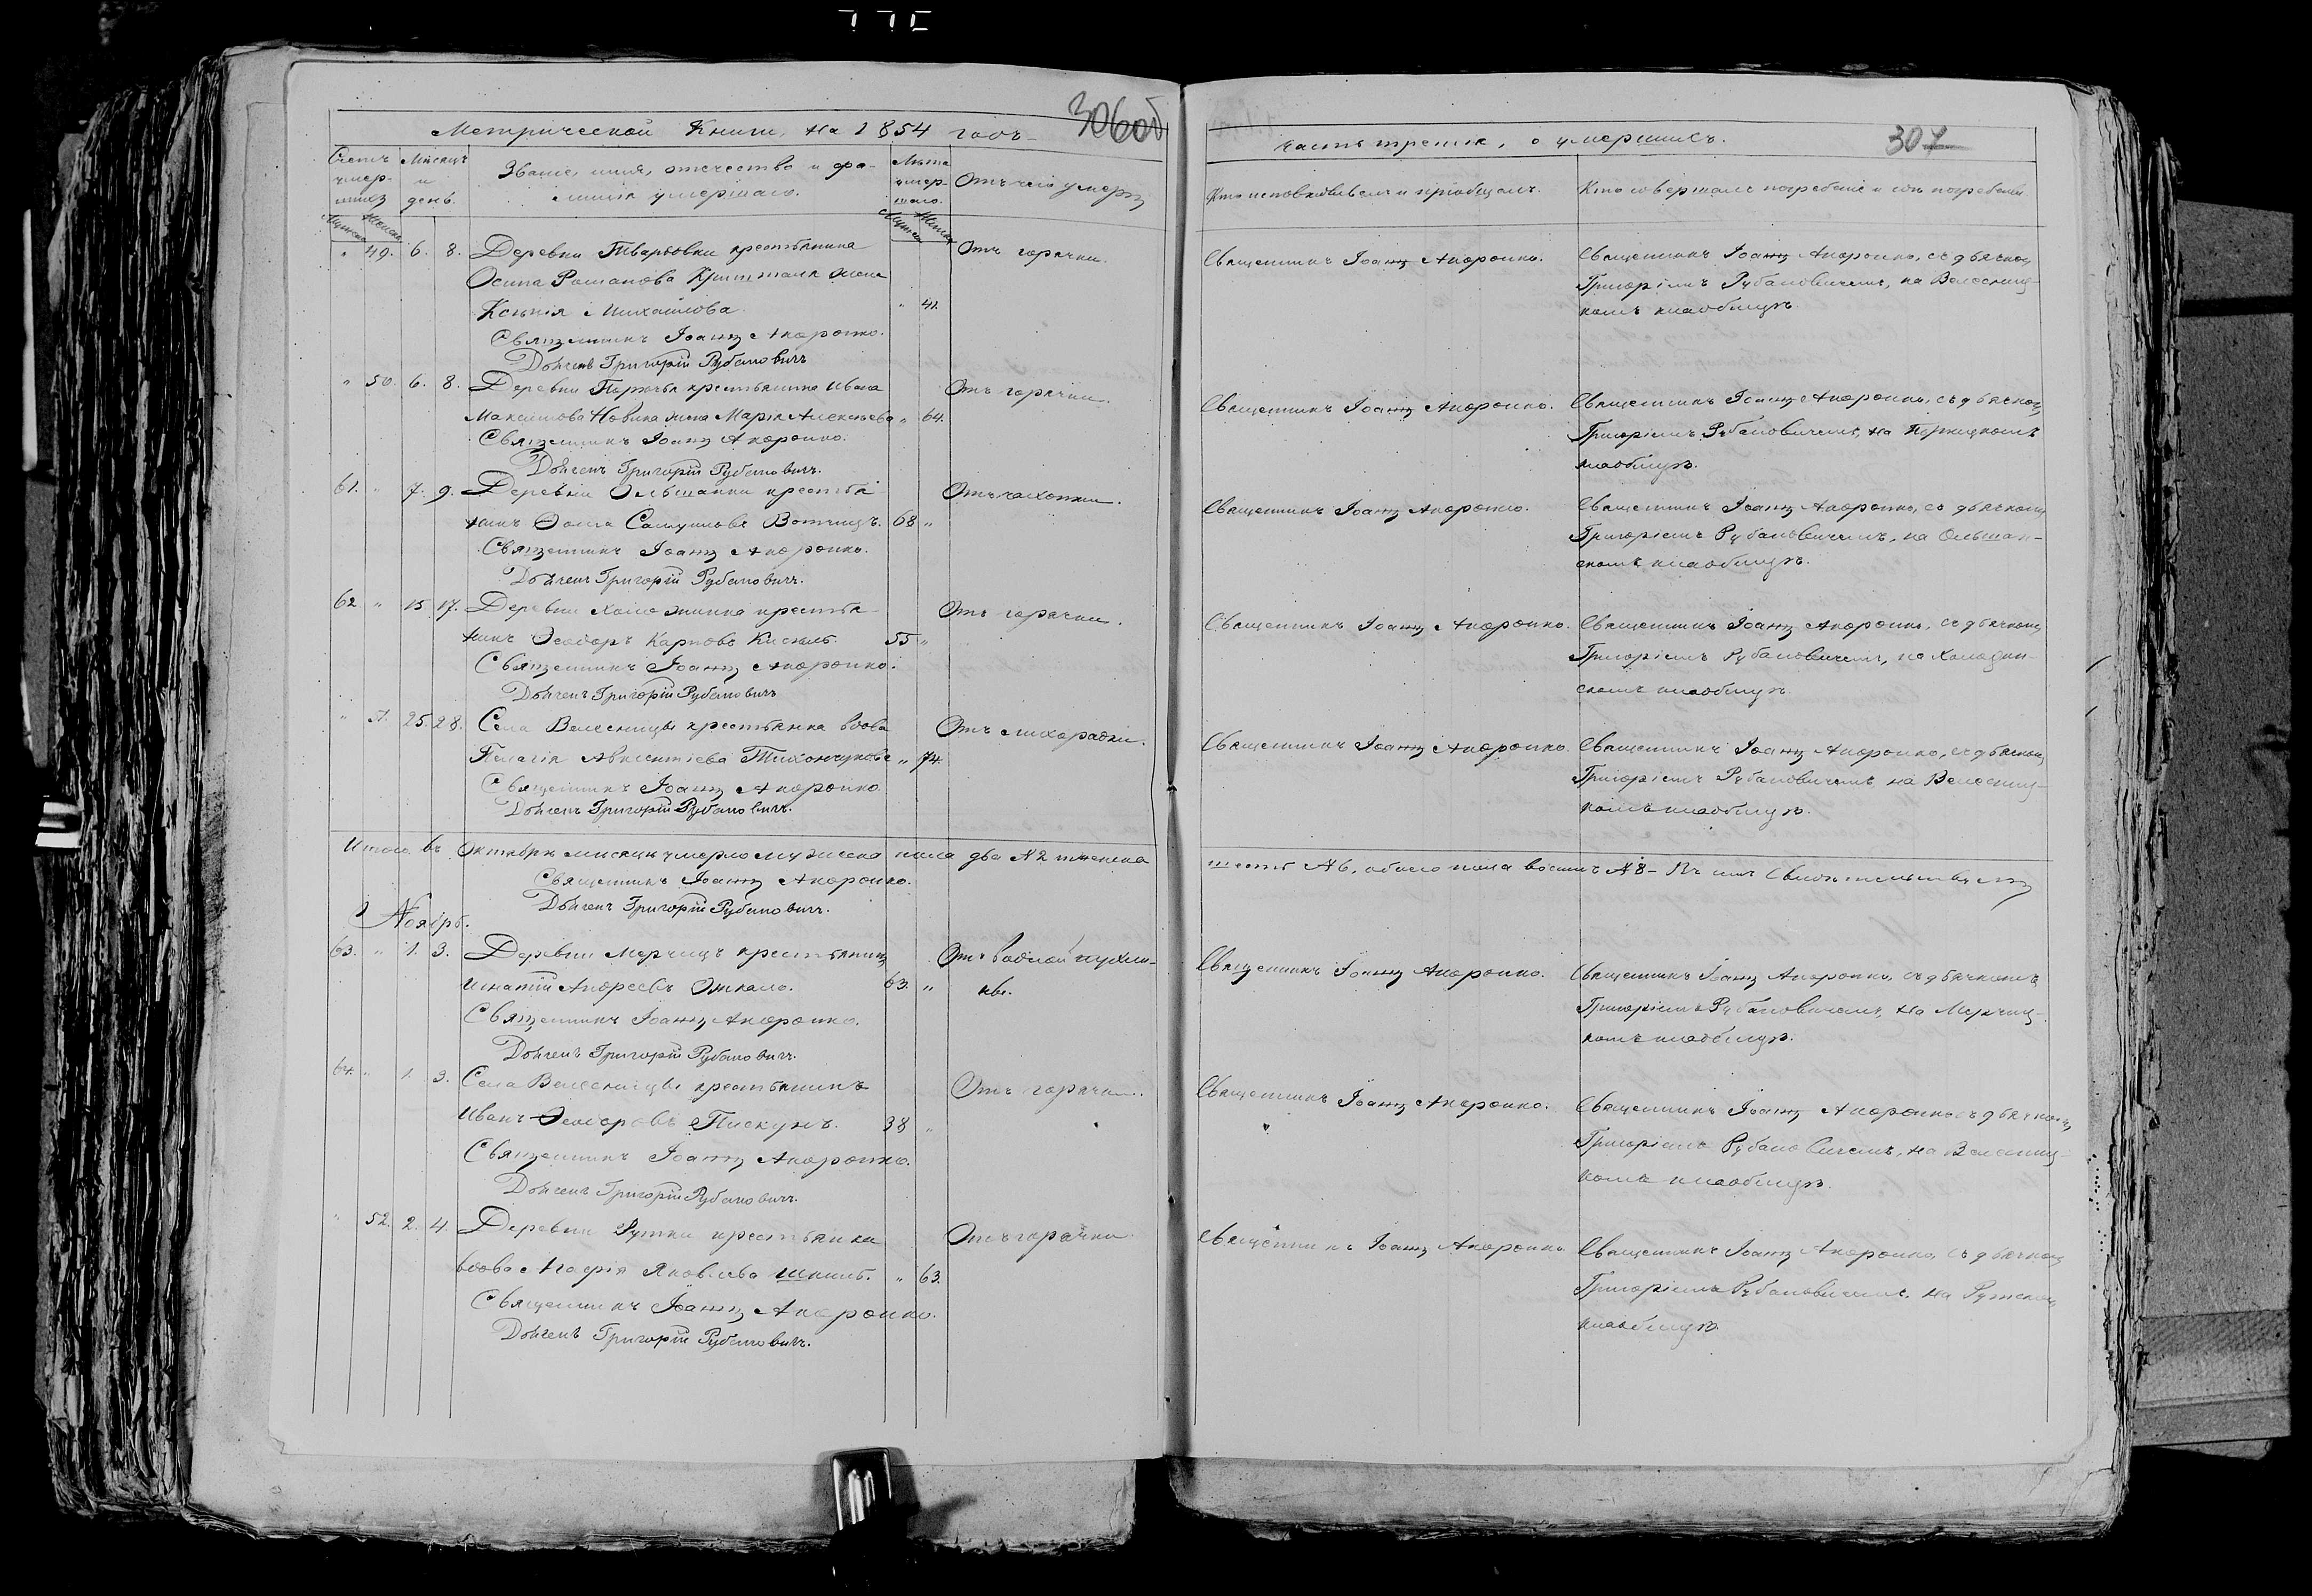 306об
Метрической Книги, на 1854 годъ
Счетъ умер-шихъ
Мѣсяцъ и день.
Званіе, имя, отчество и фа-
милія умершаго.
Лѣта умер-шаго.
Отъ чего умеръ
" 49. 6. 8. Деревни Тваровки крестьянина
Отъ горячки.
Осипа Романова жена
Ксенія Михайлова " 41.
Священникъ Іоаннъ Андронко.
Дьячекъ Григорій Рубановичъ
" 50. 6. 8. Деревни крестьянина Ивана
Отъ горячки.
Максимова Новика жена Марія Алексѣева " 64.
Священникъ Іоаннъ Андронко.
Дьячекъ Григорій Рубановичъ.
61. " 7. 9. Деревни Ольшанки крестья-
Отъ чахотки.
нинъ Ѳома Самуиловъ 68 "
Священникъ Іоаннъ Андронко.
Дьячекъ Григорій Рубановичъ.
62 " 15. 17. Деревни крестья-
Отъ горячки.
нинъ Ѳеодоръ Карповъ Кисель. 55 "
Священникъ Іоаннъ Андронко.
Дьячекъ Григорій Рубановичъ
" 51. 25. 28. Села Велесницы крестьянка вдова
Отъ лихорадки.
Пелагія Авксентіева Тихончукова " 74.
Священникъ Іоаннъ Андронко
Дьячекъ Григорій Рубановичъ.
Итого въ Октябрѣ мѣсяцѣ умерло мужеска пола два № 2 женска
Священникъ Іоаннъ Андронко.
Дьячекъ Григорій Рубановичъ.
Ноябрь.
63. " 1. 3. Деревни Мерчицъ крестьянинъ
Отъ водной пухли-
Игнатій Андреевъ 63. "
ны.
Священникъ Іоаннъ Андронко.
Дьячекъ Григорій Рубановичъ.
64. " 1. 3. Села Велесницы крестьянинъ
Отъ горячки.
Иванъ Ѳеодоровъ Пискунъ. 38 "
Священникъ Іоаннъ Андронко.
Дьячекъ Григорій Рубановичъ.
" 52. 2. 4. Деревни Рутки крестьянка
Отъ горячки.
вдова Марія Яковлева " 63.
Священникъ Іоаннъ Андронко.
Дьячекъ Григорій Рубановичъ.
307
часть третія, о умершихъ.
Кто исповѣдывалъ и пріобщалъ.
Кто совершалъ погребеніе и гдѣ погребены
Священникъ Іоаннъ Андронко.
Священникъ Іоаннъ Андронко, съ дьячкомъ
Григоріемъ Рубановичемъ, на Велесниц-
комъ кладбищѣ.
Священникъ Іоаннъ Андронко.
Священникъ Іоаннъ Андронко, съ дьячкомъ
Григоріемъ Рубановичемъ, на
кладбищѣ.
Священникъ Іоаннъ Андронко.
Священникъ Іоаннъ Андронко, съ дьячкомъ
Григоріемъ Рубановичемъ, на Ольшан-
скомъ кладбищѣ.
Священникъ Іоаннъ Андронко.
Священникъ Іоаннъ Андронко, съ дьячкомъ
Григоріемъ Рубановичемъ, на
скомъ кладбищѣ.
Священникъ Іоаннъ Андронко.
Священникъ Іоаннъ Андронко, съ дьячкомъ
Григоріемъ Рубановичемъ на Велесниц-
комъ кладбищѣ.
шесть № 6, обоего пола восемь № 8 – Въ чемъ свидѣтельствуемъ
Священникъ Іоаннъ Андронко.
Священникъ Іоаннъ Андронко, съ дьячкомъ
Григоріемъ Рубановичемъ, на Мерчиц-
комъ кладбищѣ.
Священникъ Іоаннъ Андронко.
Священникъ Іоаннъ Андронко съ дьячкомъ
Григоріемъ Рубановичемъ, на Велесниц-
комъ кладбищѣ.
Священникъ Іоаннъ Андронко
Священникъ Іоаннъ Андронко, съ дьячкомъ
Григоріемъ Рубановичемъ, на Рутскомъ
кладбищѣ.